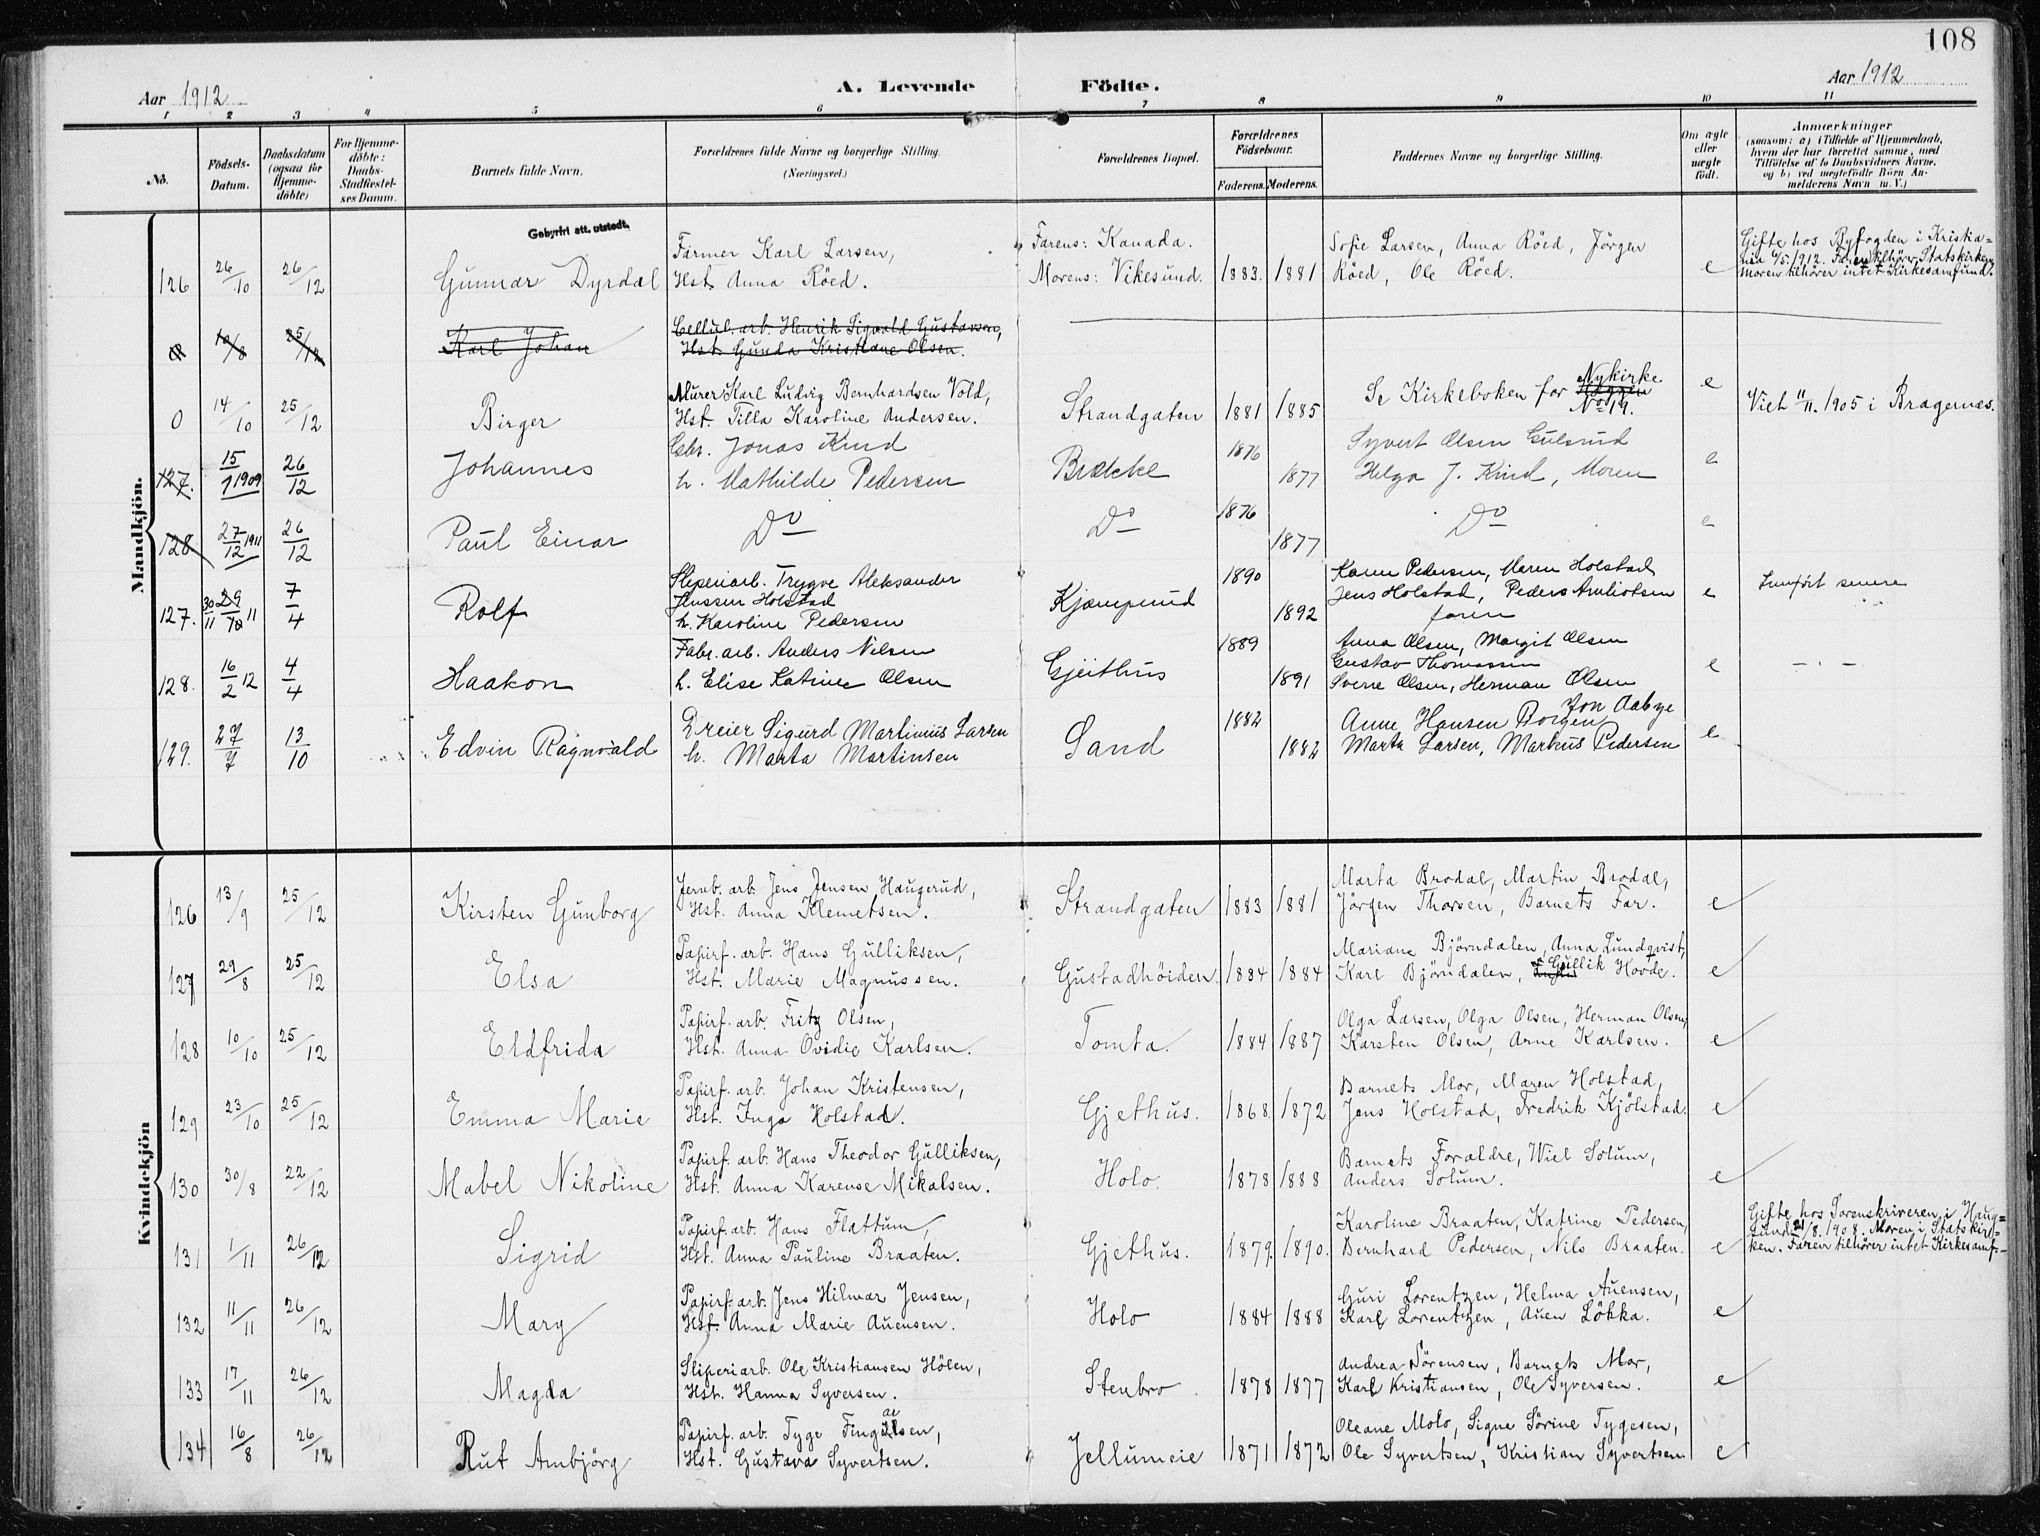 108
Aar 1912
A. Levende
Födte.
Aar 1912
1 2 3 4 5 6 7 8 9 10 11
No.
Födsels-
Datum.
Daabsdatum
(ogsaa for
Hjemme-
döbte)
For Hjemme-
döbte:
Daabs-
Stadfæstel-
ses Datum.
Barnets fulde Navn.
Forældrenes fulde Navne og borgerlige Stilling.
(Næringsvei.)
Forældrenes Bopæl.
Forældrenes
Födselsaar.
Faderens. Moderens.
Faddernes Navne og borgerlige Stilling.
Om ægte
eller
uægte
födt.
Anmærkninger
(saasom: a) i Tilfælde af Hjemmedaab,
hvem der har forrettet samme, med
Tilföielse af to Daabsvidners Navne,
og b) ved uægtefödte Börn An-
melderens Navn m. V.)
Mandkjön.
Gebyrfri att. utstedt.
126 26/10 26/12 Gunnar Dyrdal
Farmer Karl Larsen,
Hst. Anna Röed.
Farens: Kanada.
Morens: Vikesund. 1883. 1881
Sofie Larsen, Anna Röed, Jörgen
Röed, Ole Röed. e
Gifte hos Byfogden i Kristia=
nia 6/5.1912. Faren tilhörer Statskirken,
Moren tilhörer intet Kirkesamfund.
10/8 25/12 Karl Johan
Cellul. arb. Henrik Sigvald Gustavsen,
Hst. Gunda Kristiane Olsen.
0 14/10 25/12 Birger
Murer Karl Ludvig Bernhardsen Vold,
Hst. Tilla Karoline Andersen.
Strandgaten 1881 1885
Se Kirkeboken for Nykirke
No 19. e
Viet 11/11. 1905 i Bragernæs.
127. 15/1 1909 26/12 Johannes
Gbr. Jonas Kind
h. Mathilde Pedersen
Brække 1876 1877
Syvert Olsen Gulsrud
Helga J. Kind, Moren e
128 27/12 1911 26/12 Paul Einar
Do Do 1876 1877 Do e
127. 30/11 29/10 11 7/4 Rolf
Sliperiarb. Trygve Aleksander
Jenssen Holstad
h. Karoline Pedersen
Kjæmperud 1890 1892
Karen Pedersen, Maren Holstad
Jens Holstad, Peders Arnliotsen
faren e
Innfört senere
128. 16/2 12 4/4 Haakon
Fabr. arb. Anders Nilsen
h. Elise Katrine Olsen
Gjeithus 1889 1891
Anna Olsen, Margit Olsen
Gustav Thomassen
Sverre Olsen, Herman Olsen e
— " —
129. 27/7 13/10 Edvin Ragnvald
Dreier Sigurd Martinius Larsen
h. Marta Martinsen
Sand 1882 1882
Jon Aabye
Anne Hansen Borgen
Marta Larsen, Markus Pedersen e
Kvindekjön
126 13/9 25/12 Kirsten Gunborg
Jernb. arb. Jens Jensen Haugerud,
Hst. Anna Klemetsen.
Strandgaten 1883 1881
Marta Brodal, Martin Brodal,
Jörgen Thorsen, Barnets Far. e
127 29/8 25/12 Elsa
Papirf. arb. Hans Gulliksen,
Hst. Marie Magnussen.
Gustadhöiden. 1884 1884
Mariane Björndalen, Anna Lundqvist,
Karl Björndalen, Gullik Hovde. e
128 10/10 25/12 Eldfrida
Papirf. arb. Fritz Olsen,
Hst. Anna Ovidie Karlsen.
Tomta. 1884 1887
Olga Larsen, Olga Olsen, Herman Olsen,
Karsten Olsen, Arne Karlsen. e
129 23/10 25/12 Emma Marie
Papirf. arb. Johan Kristensen,
Hst. Inga Holstad.
Gjethus. 1868. 1872
Barnets Mor, Maren Holstad,
Jens Holstad, Fredrik Kjölstad. e
130 30/8 22/12 Mabel Nikoline
Papirf. arb. Hans Theodor Gulliksen,
Hst. Anna Karense Mikalsen.
Holo. 1878 1888
Barnets Forældre, Wiel Solum,
Anders Solum. e
131 1/11 26/12 Sigrid
Papirf. arb. Hans Flattum,
Hst. Anna Pauline Braaten.
Gjethus. 1879. 1890.
Karoline Braaten, Katrine Pedersen,
Bernhard Pedersen, Nils Braaten. e
Gifte hos Sorenskriveren i Haug=
sund 21/8. 1908. Moren i Statskir=
ken. Faren tilhörer intet Kirkesamf.
132 11/11 26/12 Mary
Papirf. arb. Jens Hilmar Jensen,
Hst. Anna Marie Auensen.
Holo 1884 1888
Guri Lorentzen, Helma Auensen,
Karl Lorentzen, Auen Lökka. e
133 17/11 26/12 Magda
Sliperiarb. Ole Kristiansen Hölen,
Hst. Hanna Syversen.
Stenbro 1878 1877
Andrea Sörensen, Barnets Mor,
Karl Kristiansen, Ole Syversen. e
134 16/8 26/12 Rut Ambjörg
Papirf. arb. Tyge Fingalsen,
Hst. Gustava Syvertsen.
Jellumeie 1871 1872
Oleane Molo, Signe Sörine Tygesen,
Ole Syvertsen, Kristian Syvertsen e